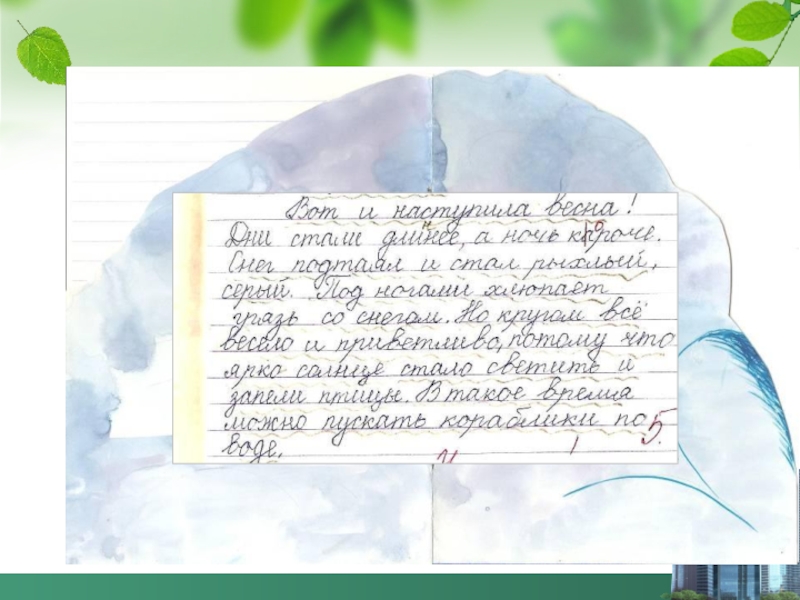 Вот и наступила весна!
Дни стали длиннее, а ночь короче.
Снег подтаял и стал рыхлый,
серый. Под ногами хлюпает
грязь со снегом. Но кругом всё
весело и приветливо, потому что
ярко солнце стало светить и
запели птицы. В такое время
можно пускать кораблики по
воде.
5.